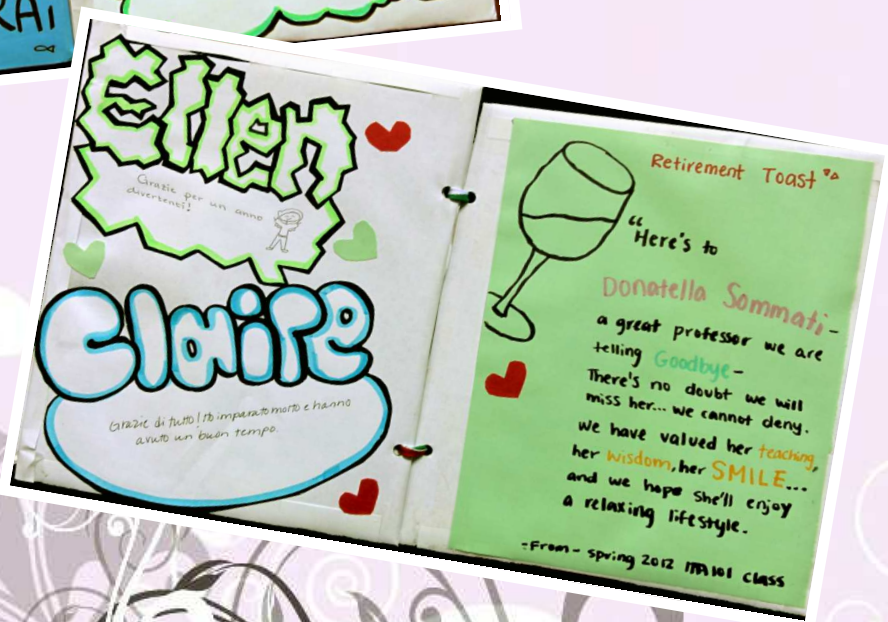 RAi
Ellen
Grazie per un anno
divertenti!
Claire
Grazie di tutto! Ho imparato morto e hanno
avuto un buon tempo.
Retirement Toast
"Here's to
Donatella Sommati-
a great professor we are
telling Goodbye-
There's no doubt we will
miss her... we cannot deny.
We have valued her teaching,
her wisdom, her SMILE...
and we hope she'll enjoy
a relaxing lifestyle.
-From- spring 2012 ITA101 class